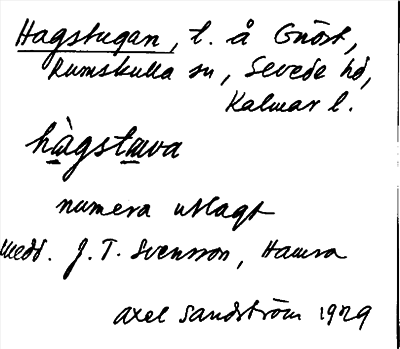 Hagstugan, t. å Gnöst,
Rumskulla sn, Sevede hd,
Kalmar l.
hàgstuva
numera utlagt
medd. J. T. Svensson, Hamra
Axel Sandström 1929